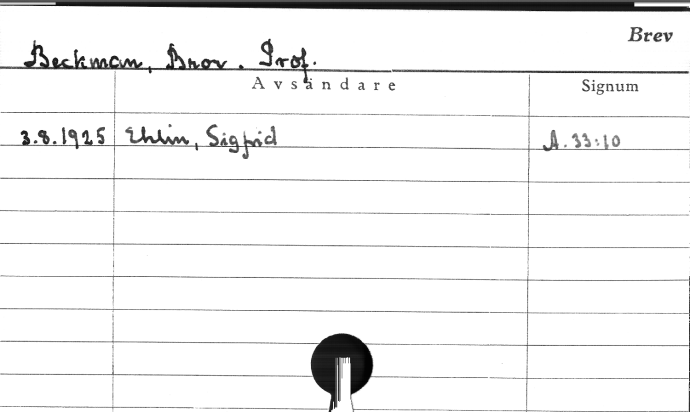 Brev
Beckman, Bror. Prof.
Avsändare Signum
3.8.1925 Ehlin, Sigfrid A.33:10